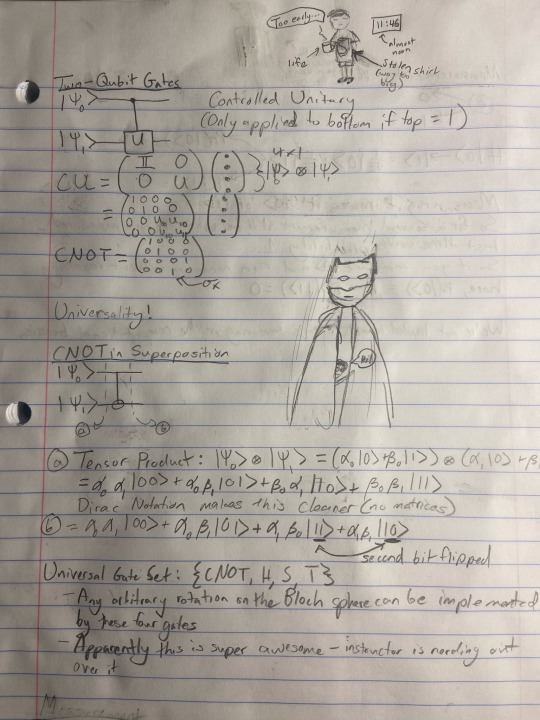 Too early...
11:46
almost
noon
life
Stolen shirt
(way too
big)
Two-Qubit Gates
|Ψ₀>
Controlled Unitary
(Only applied to bottom if top = 1)
|Ψ₁> U
4x1
CU = (𝟙 0 0 U) (::) } |Ψ₀> ⊗ |Ψ₁>
= (1 0 0 0
0 1 0 0
0 0 U₀₀ U₁₀
CNOT = (1 0 0 0
0 1 0 0
0 0 0 1
0 0 1 0)
σx
Universality!
CNOT in Superposition
|Ψ₀>
|Ψ₁>
ⓐ ⓑ
ⓐ Tensor Product: |Ψ₀> ⊗ |Ψ₁> = (α₀|0>+β₀|1>) ⊗ (α₁|0> + β
= α₀α₁|00> + α₀β₁|01> + β₀α₁|10> + β₀β₁|11>
Dirac Notation makes this cleaner (no matrices)
ⓑ = α₀α₁|00> + α₀β₁|01> + α₁β₀|11> + α₁β₁|10>
second bit flipped
Universal Gate Set: {CNOT, H, S, T}
- Any arbitrary rotation on the Bloch sphere can be implemented
by these four gates
- Apparently this is super awesome - instructor is nerding out
over it
Measurement